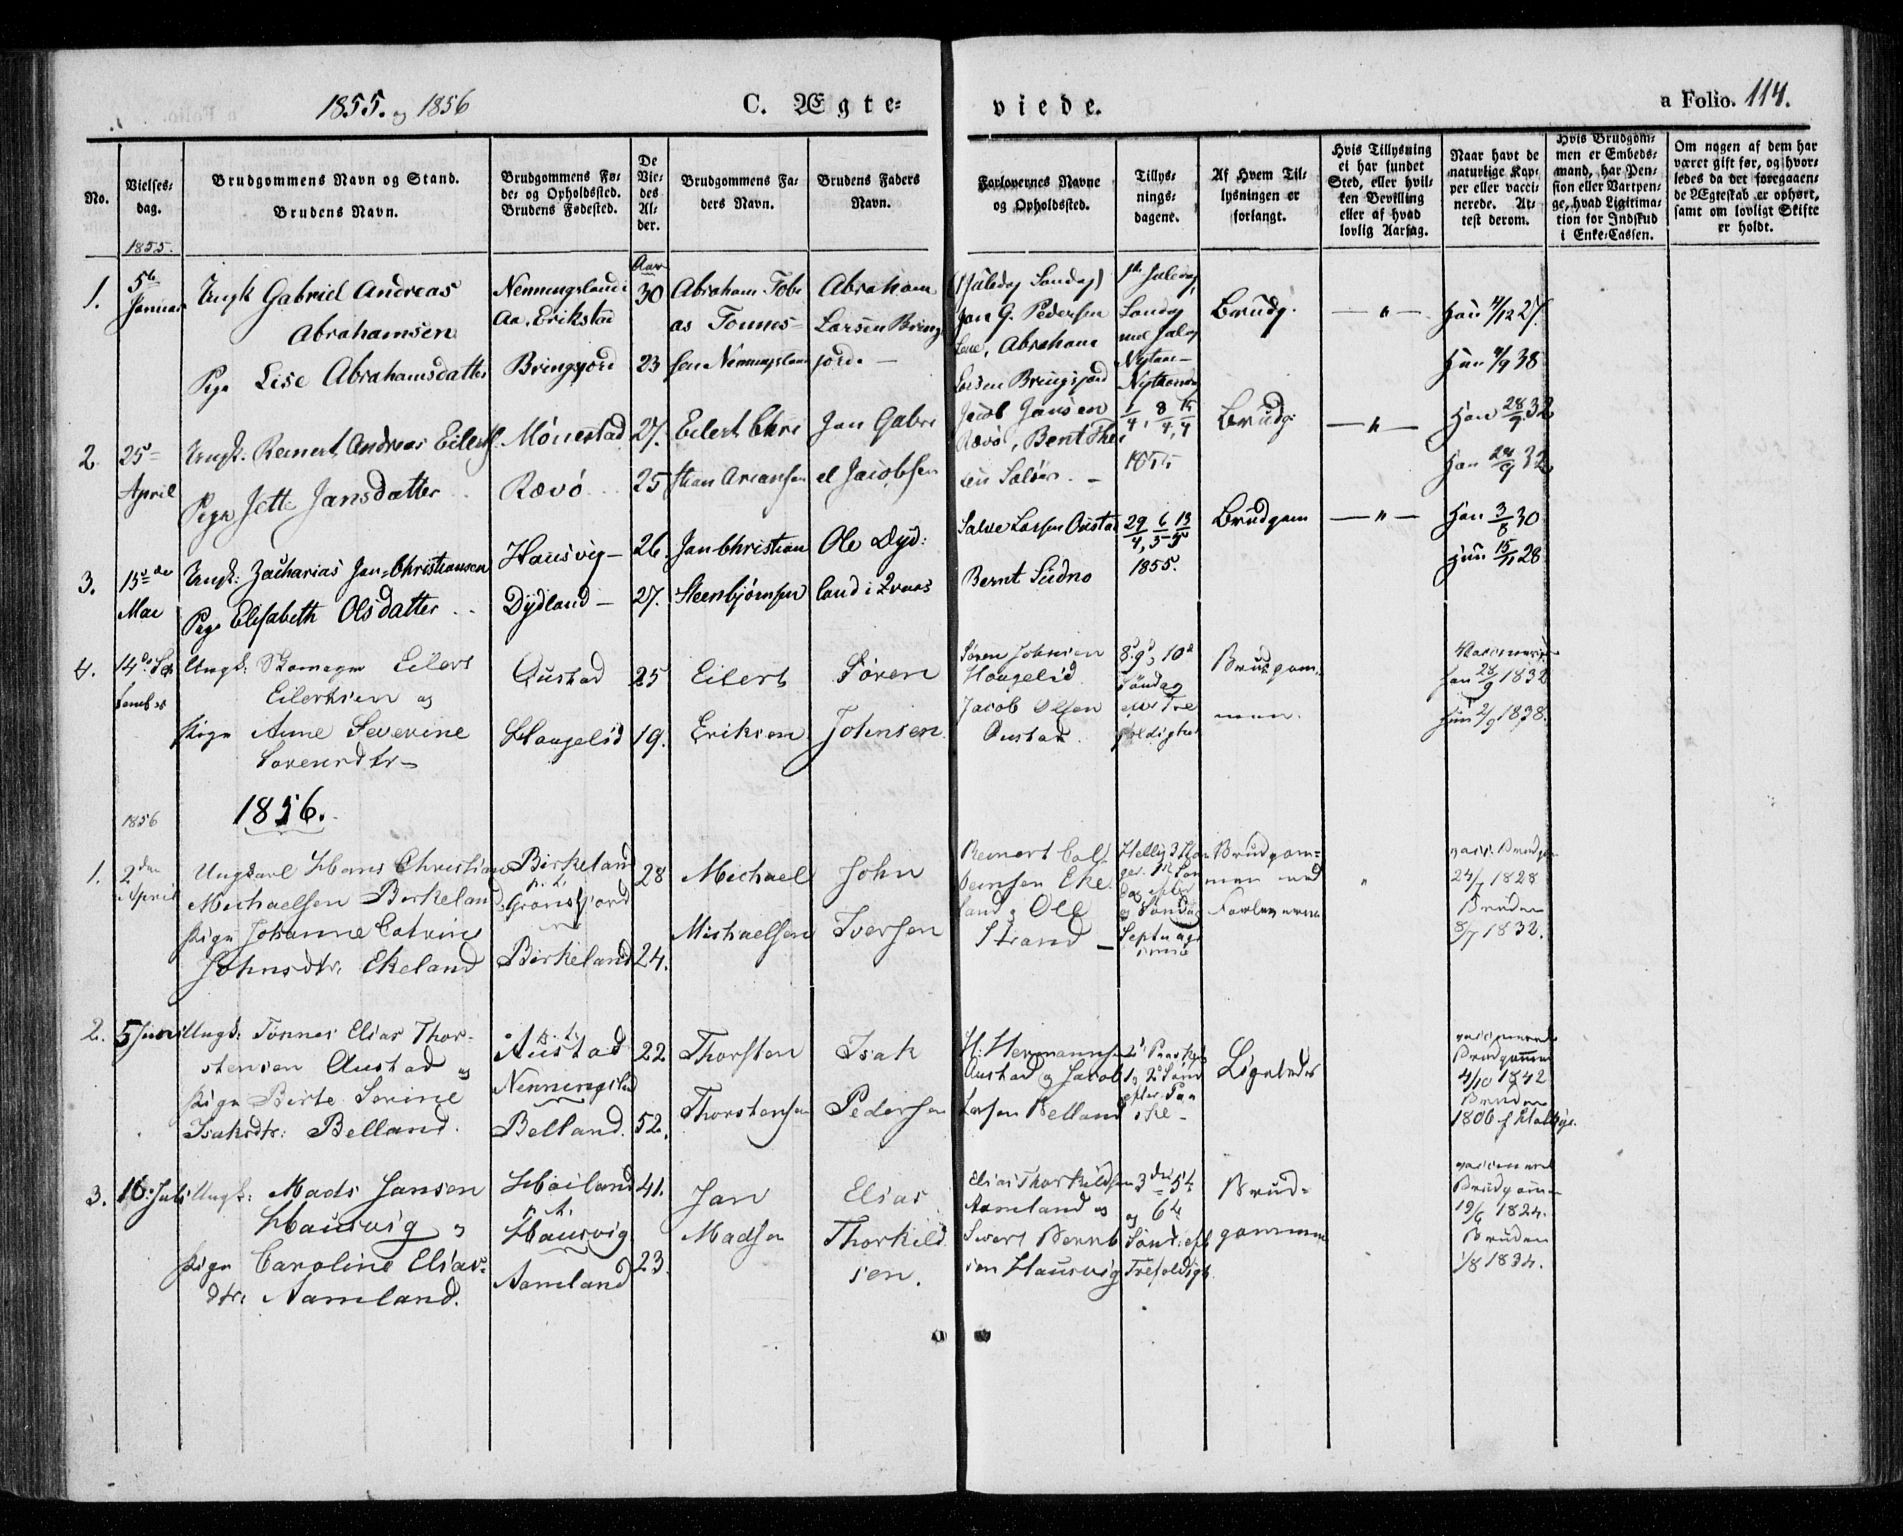 1855. og 1856
C. Ægte-
viede.
a Folio. 114.
No.
Vielses-
dag.
Brudgommens Navn og Stand.
Brudens Navn.
Brudgommens Fø-
de- og Opholdssted.
Brudens Fødested.
De
Vie-
des
Al-
der.
Brudgommens Fa-
ders Navn.
Brudens Faders
Navn.
Forlovernes Navne
og Opholdssted.
Tillys-
nings-
dagene.
Af Hvem Til-
lysningen er
forlangt.
Hvis Tillysning
ei har fundet
Sted, eller hvil-
ken Bevilling
eller af hvad
lovlig Aarsag.
Naar havt de
naturlige Kop-
per eller vacci-
nerede. At-
test derom.
Hvis Brudgom-
men er Embeds-
mand, har Pen-
sion eller Vartpen-
ge, hvad Ligitima-
tion for Indskud
i Enke-Cassen.
Om nogen af dem har
været gift før, og hvor-
ledes da det foregaaen-
de Ægteskab er ophørt,
samt om lovligt Skifte
er holdt.
1855.
Aar
1.
5te
Januar
Ungk Gabriel Andreas
Abrahamsen
Pige Lise Abrahamsdatter
Nenningsland i
Aa, Erikstad
Bringsjord
30
23
Abraham Tobi
as Tønnes-
sen Nenningsland
Abraham
Larsen Brings
jord -
Jan G. Pedersen
Abraham
Larsen Bringsjord
Søndag
med Juleog
Nytaar
Brudg.
— " —
Han 11/12 27.
Hun 4/9 38.
2
25
April
Ungk. Reinert Andreas Eilerts.
Pige Jette Jansdatter
Mønestad
Rævø
27.
25
Eilert Chri
stian Ariansen
Jan Gabri
el Jacobsen
Jacob Jansen
Rævø, Bent The
1/4, 8/4, 15/4
1855
Brudg:
— " —
Han 28/9 32
Hun 29/9 32
3.
15de
Mai
Ungk: Zacharias Jan-Christiansen
Pige Elisabeth Olsdatter
Hausvig -
Dydland -
26.
27.
Jan Christian
Steenbjørnsen
Ole Dyd:
land i Qvaas
Salve Larsen Oustad
Bernt Sudno
29/4, 6/5 13/5
1855.
Brudgom
— " —
Han 3/8 30
Hun 15/11 28
4.
14de Sep
tember
Ungk: Skomager Eilert
Eilertsen og
Pige Anne Severine
Sørensdtr -
Oustad
Haugelid
25
19.
Eilert
Eriksen
Søren
Johnsen
Søren Johnsen
Haugelid
Jacob Olsen
Oustad
8d 9d 10d
Søndag
eft. Tre
foldighed
Brudgom-
men.
Han 28/9 1832
Hun 2/9 1838.
1856
1856.
1.
2den
April
Ungkarl Hans Christian
Michaelsen Birkeland
Pige Johanne Catrine
Johnsdtr. Ekeland
Birkeland
p. t.
Grønsfjord
Birkeland
28
24.
Michael
Michaelsen
John
Iversen
Reinert Col
bensen Eke
land & Ole
Strand -
Hellig 3 Kon
ger, 1st Søn
dag efter
og Søndag
Septuage
sima
Brudgom-
men med
Forloverne
"
vacc. Brudgom
24/7 1828
Bruden
8/7 1832.
2.
5 Juni
Ungk: Tønnes Elias Thor-
stensen Austad og
Pige Berte Serine
Isaksdtr: Belland.
p. t.
Austad
Nenningsland
Belland.
22
52.
Thorsten
Thorstensen
Isak
Pedersen
H. Hermannsen
Austad og Jacob
Larsen Belland
2d Paaske
1 & 2d Sønd
efter Paa
ske -
Ligeledes
vaccinerede
Brudgommen
4/10 1842
Bruden
1806
3.
10. Juli
Ungk: Mads Jansen
Hausvig &
Pige Caroline Elias-
dtr. Aamland.
Høiland
p. t.
Hausvig
Aamland
41.
23.
Jan
Madsen
Elias
Thorkild
sen.
Elias Thorkildsen
Aamland og
Sivert Bernt
sen Hausvig
3die 5te
og 6te
Sønd: eft
Trefoldigh
Brud-
gommen
vaccinered
Brudgommen
19/6 1824.
Bruden
1/8 1834.